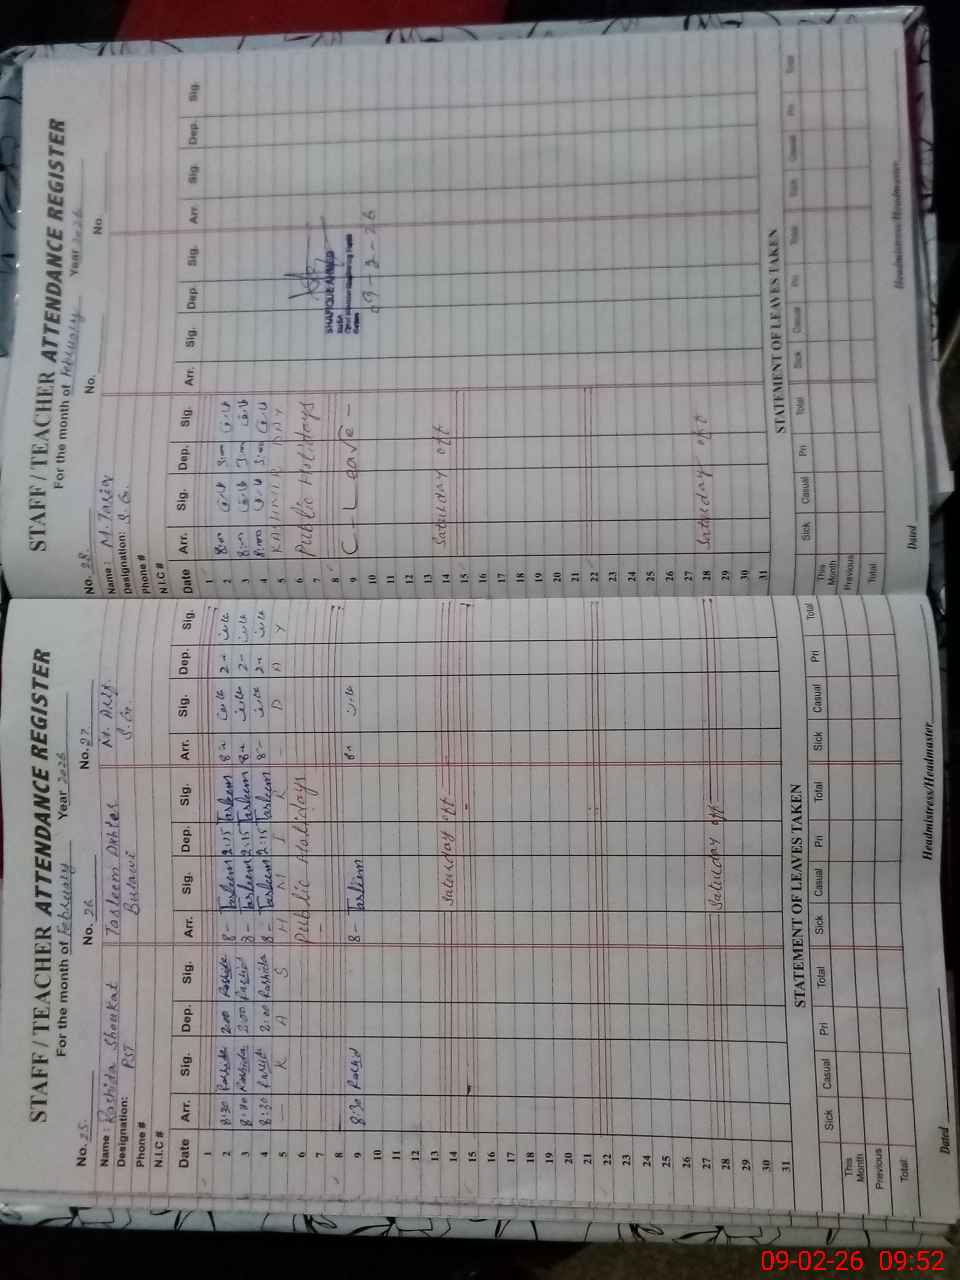 STAFF / TEACHER ATTENDANCE REGISTER
For the month of February Year 2026
No. 25 No. 26 No. 27
Name: Rashida Shoukat Tasleem Akhter M. Arif
Designation: PST S.G.
Phone #
N.I.C #
Date Arr. Sig. Dep. Sig. Arr. Sig. Dep. Sig. Arr. Sig. Dep. Sig.
1
2 8:30 Rashida 2:00 Rashida 8- Tasleem 2:15 Tasleem
3 8:30 Rashida 2:00 Rashid 8- Tasleem 2:15 Tasleem
4 8:30 Rashid 2:00 Rashida 8- Tasleem 2:15 Tasleem
5 - K A S H M I R - D A Y
6 Public Holidays
7
8
9 8:30 Rashid 8- Tasleem
10
11
12
13
14 Saturday off
15
16
17
18
19
20
21
22
23
24
25
26
27
28 Saturday off
29
30
31
STATEMENT OF LEAVES TAKEN
Sick Casual Pri Total Sick Casual Pri Total Sick Casual Pri Total
This Month
Previous
Total:
Dated Headmistress/Headmaster
STAFF / TEACHER ATTENDANCE REGISTER
For the month of February Year 2026
No. 28 No. No.
Name: M. Tariq
Designation: S.G.
Phone #
N.I.C #
Date Arr. Sig. Dep. Sig. Arr. Sig. Dep. Sig. Arr. Sig. Dep. Sig.
1
2 8:00 3:00
3 8:00 3:00
4 8:00 3:00
5 KASHMIR DAY
6 Public Holidays
7
8 SHAFIQUE AHMED
9 C-Leave-
10 09-2-26
11
12
13
14 Saturday off
15
16
17
18
19
20
21
22
23
24
25
26
27
28 Saturday off
29
30
31
STATEMENT OF LEAVES TAKEN
Sick Casual Pri Total Sick Casual Pri Total Sick Casual Pri Total
This Month
Previous
Total
Dated Headmistress/Headmaster
09-02-26 09:52